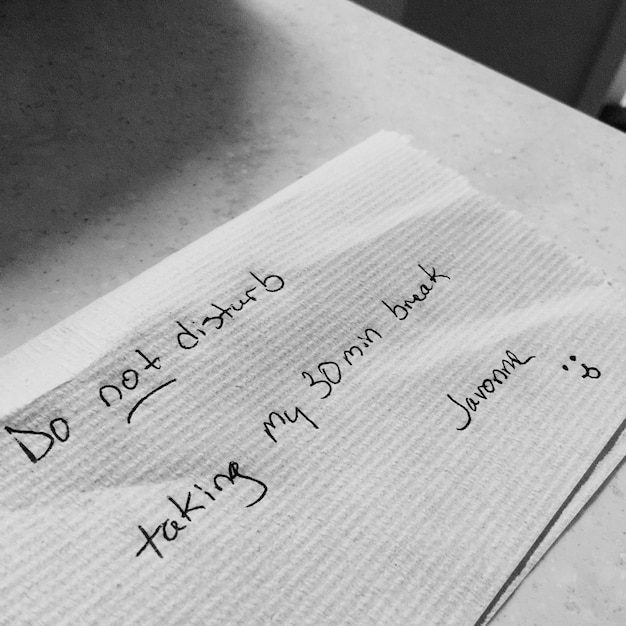 Do not disturb
taking my 30 min break
Javonne